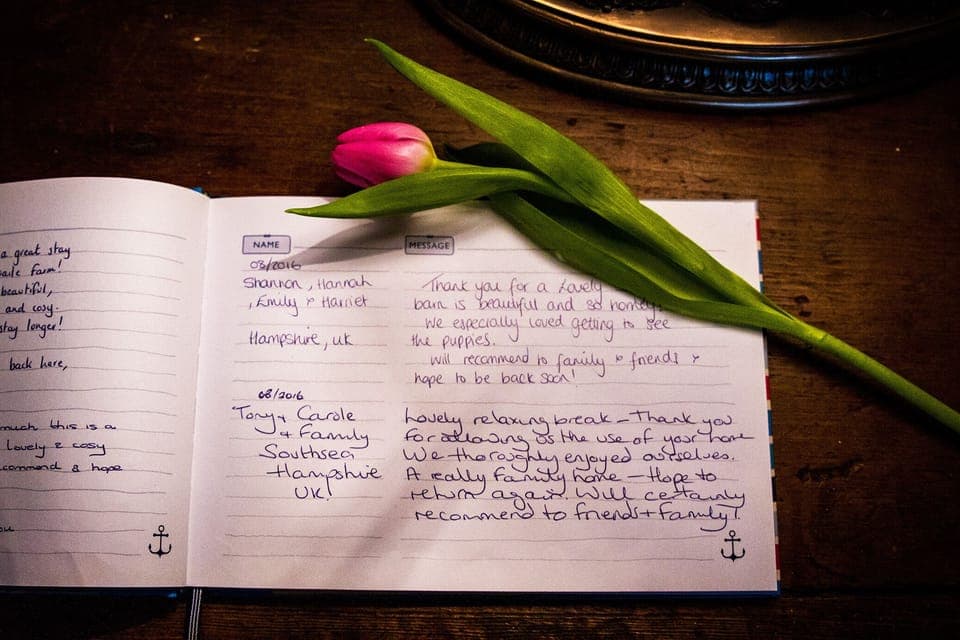 a great stay
farm!
beautiful,
and cosy.
stay longer!
back here,
much this is a
Lovely & cosy
commend & hope
NAME
MESSAGE
08/2016
Shannon, Hannah
, Emily & Harriet
Hampshire, UK
Thank you for a lovely
barn is beautiful and so homely.
We especially loved getting to see
the puppies.
Will recommend to family & friends &
hope to be back soon!
08/2016
Tony + Carole
+ Family
Southsea
Hampshire
UK!
Lovely relaxing break - Thank you
for allowing us the use of your home
We thoroughly enjoyed ourselves.
A really family home - Hope to
return again. Will certainly
recommend to friends + family!.